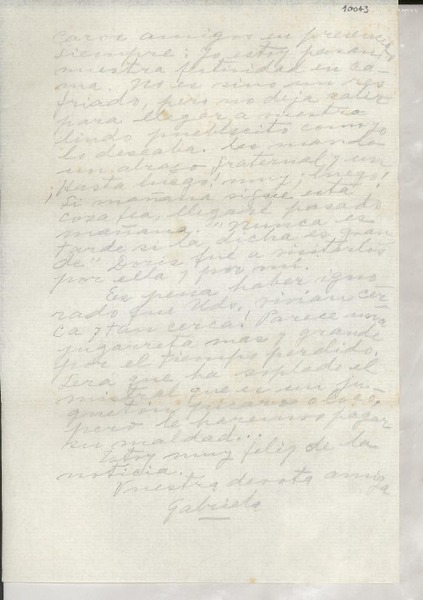 10043
Caros amigos en presencia
siempre: Yo estoy pasando
nuestra festividad en ca-
ma. No es sino un res-
friado, pero no deja salir
para llegar a vuestro
lindo pueblecito como yo
lo deseaba. Les mando
un abrazo fraternal y un
¡Hasta luego, muy luego!
Si mañana sigue esta
cosa fea, llegaré pasado
mañana. "Nunca es
tarde si la dicha es gran
de" Doris fue a visitarlos
por ella y por mí.
Es pena haber igno
rado que Uds. vivían cer
ca y tan cerca! Parece una
jugarreta mas y grande
por el tiempo perdido.
Será que ha soplado el
mistral que es un ju-
guetón y pícaro
pero le haremos pagar
su maldad..
Estoy muy feliz de la
noticia.
Vuestra devota amiga
Gabriela